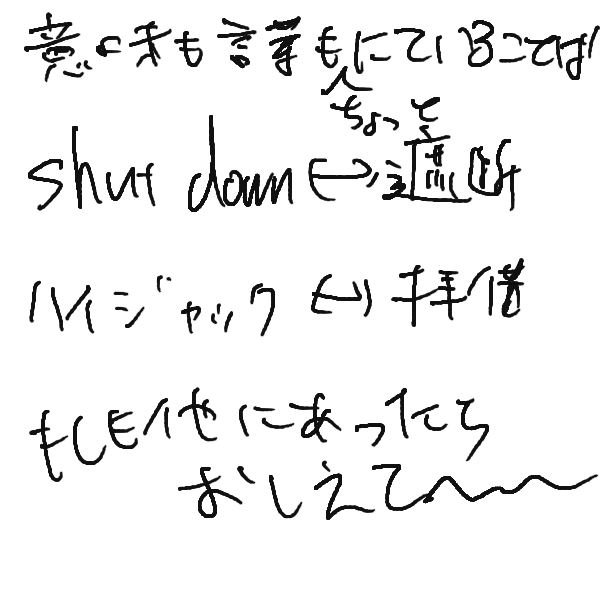 意味も言葉もにていることば
ちょっと
shut down ↔ 遮断
ハイジャック ↔ 拝借
もし他にあったら
おしえて〜〜〜